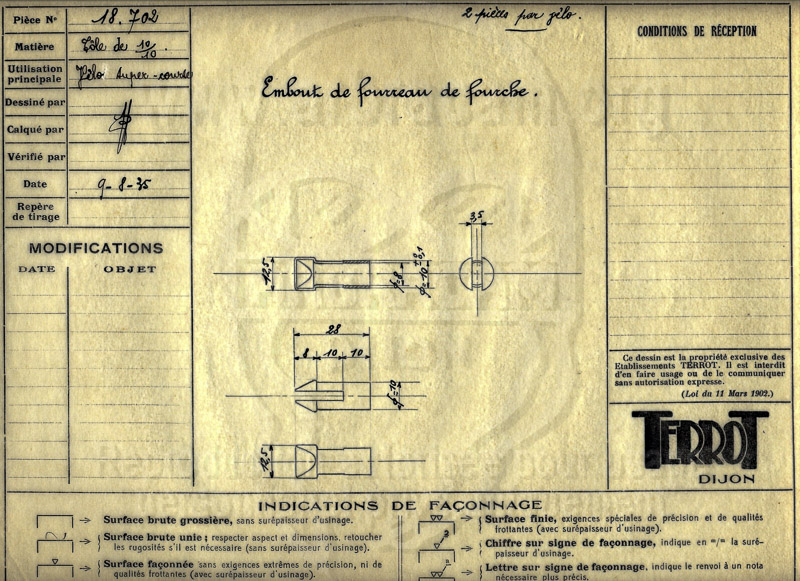 Pièce Nº 18.702
Matière Tôle de 10/10
Utilisation principale Vélo super-course
Dessiné par
Calqué par
Vérifié par
Date 9-8-35
Repère de tirage
MODIFICATIONS
DATE OBJET
2 pièces par vélo.
Embout de fourreau de fourche.
3,5
12,5
ø=8
ø=10 ±0,1
28
8 10 10
ø=10
12,5
CONDITIONS DE RÉCEPTION
Ce dessin est la propriété exclusive des
Etablissements TERROT. Il est interdit
d'en faire usage ou de le communiquer
sans autorisation expresse.
(Loi du 11 Mars 1902.)
TERROT
DIJON
INDICATIONS DE FAÇONNAGE
Surface brute grossière, sans surépaisseur d'usinage.
Surface brute unie ; respecter aspect et dimensions, retoucher
les rugosités s'il est nécessaire (sans surépaisseur d'usinage).
Surface façonnée sans exigences extrêmes de précision, ni de
qualités frottantes (avec surépaisseur d'usinage).
Surface finie, exigences spéciales de précision et de qualités
frottantes (avec surépaisseur d'usinage).
Chiffre sur signe de façonnage, indique en m/m la suré-
paisseur d'usinage.
Lettre sur signe de façonnage, indique le renvoi à un nota
nécessaire plus précis.